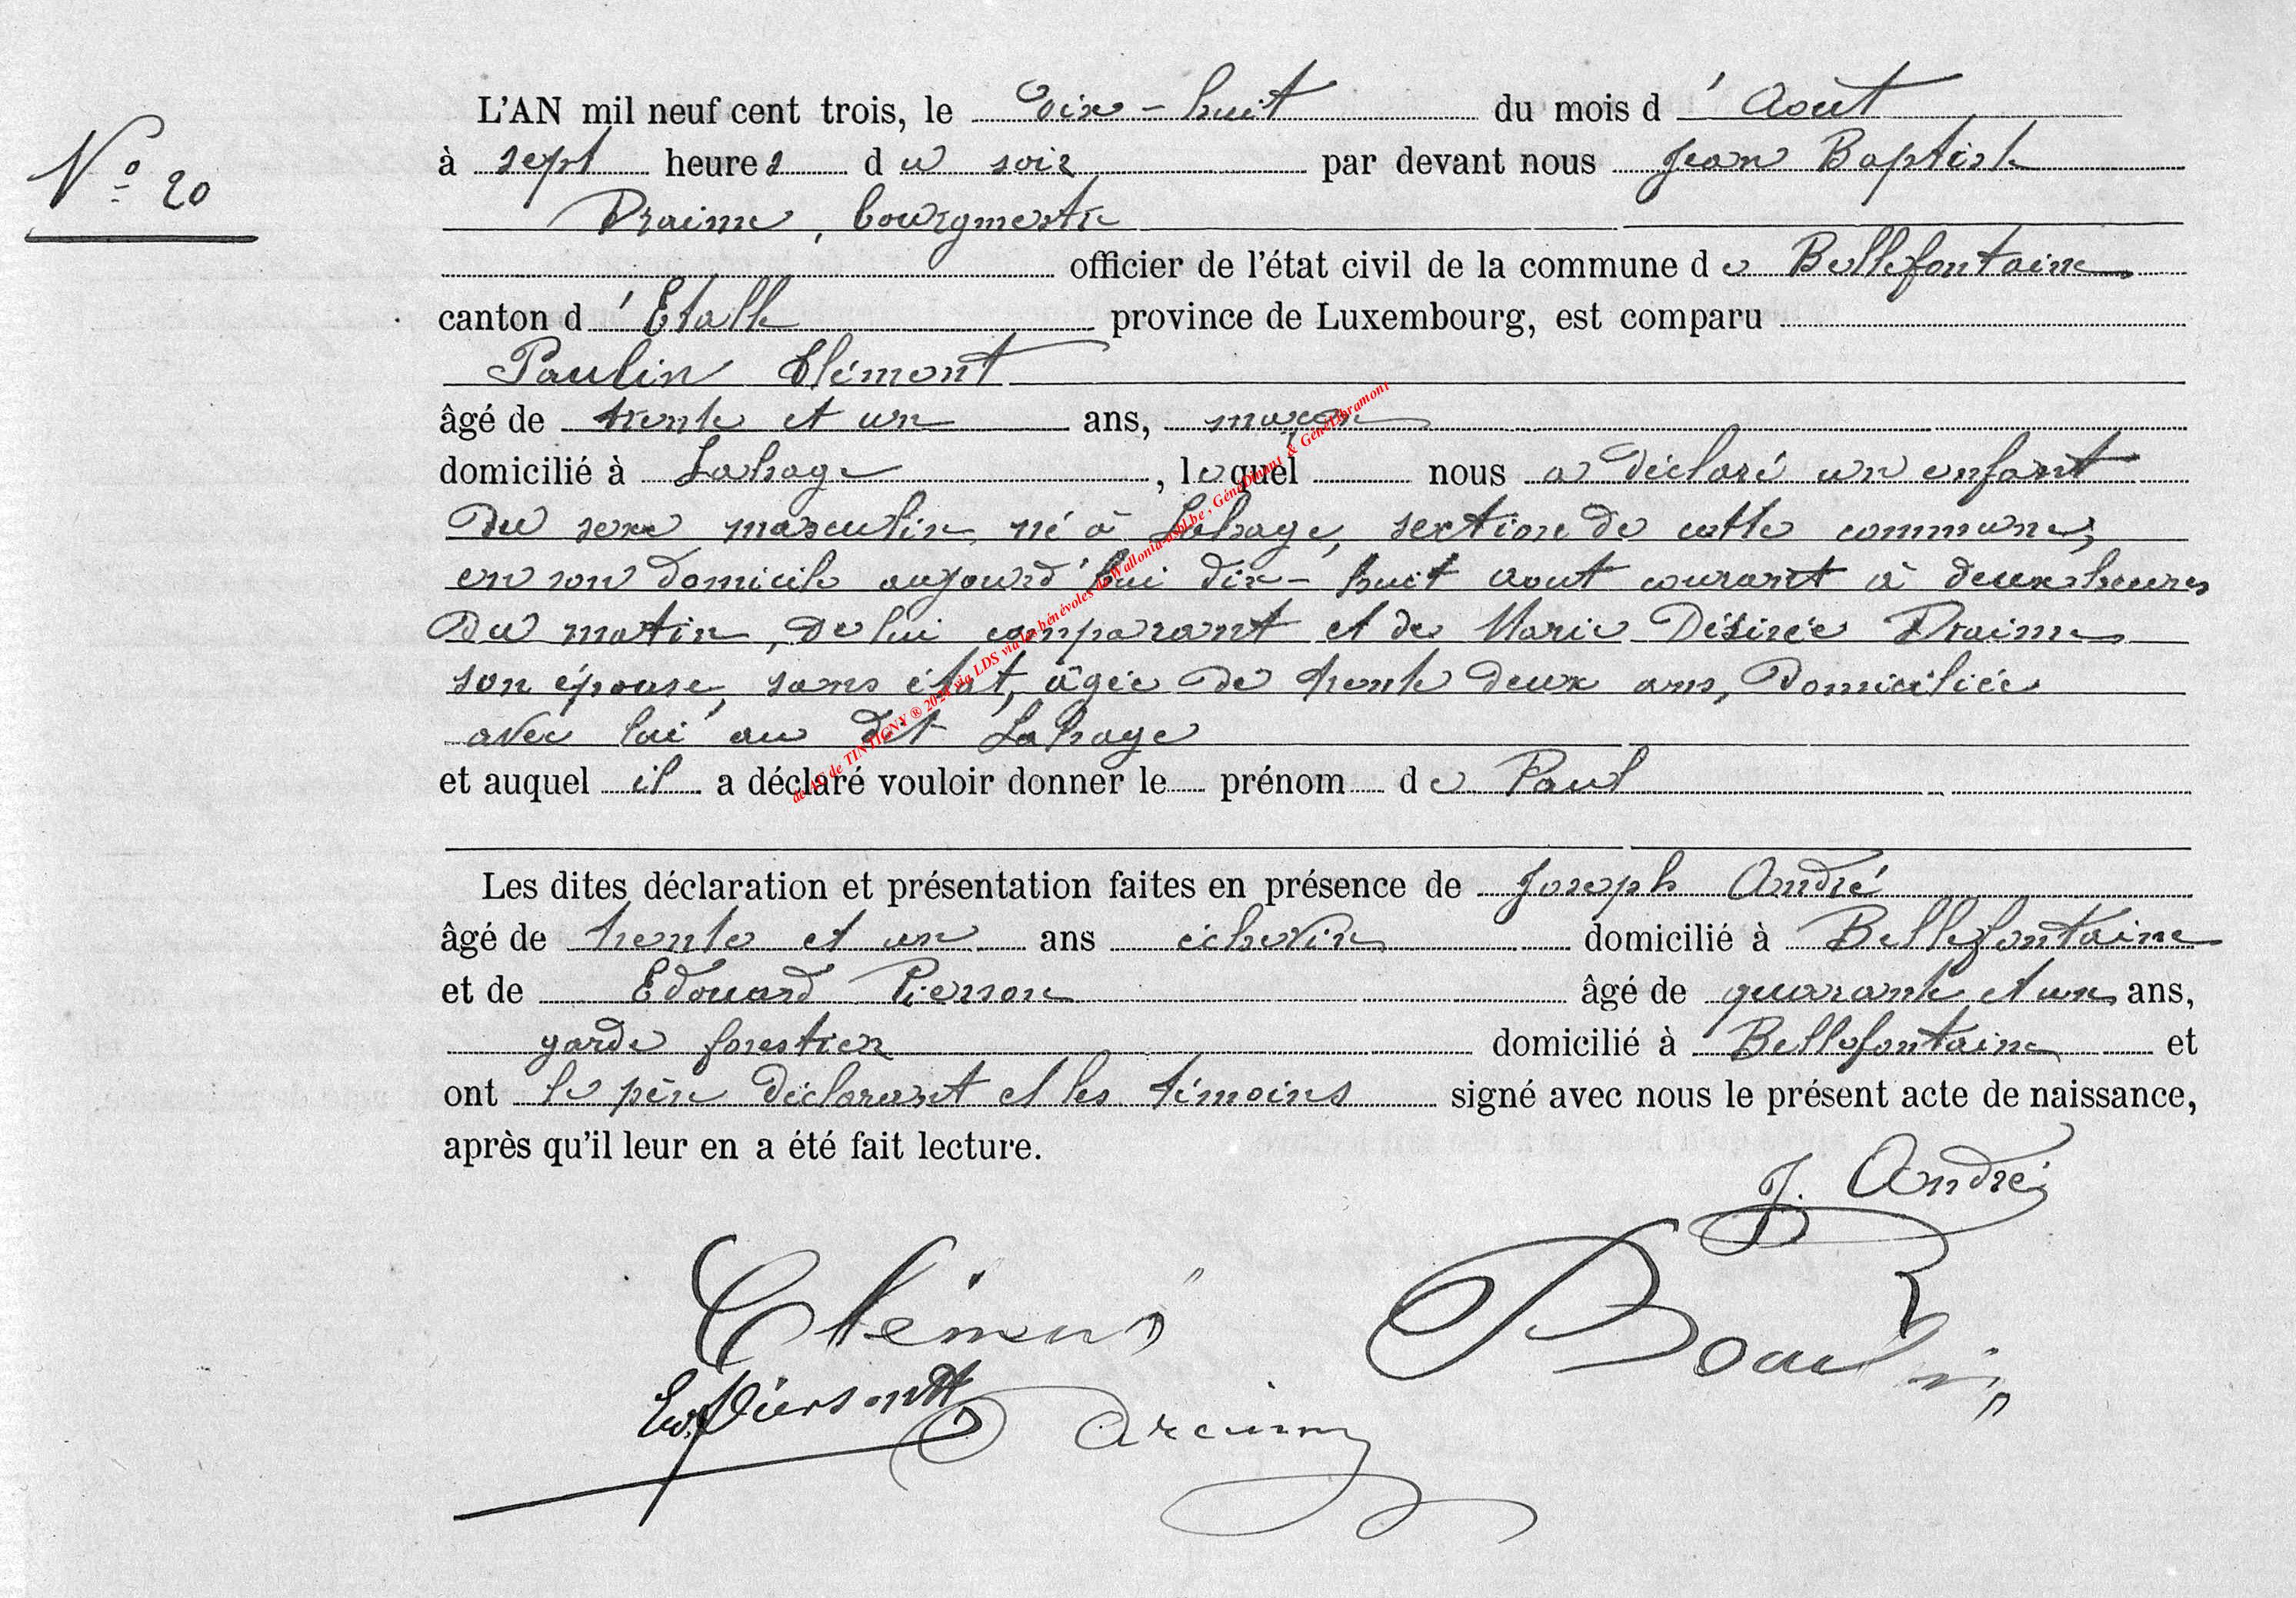 L'AN mil neuf cent trois, le dix-huit du mois d'Août
N° 20
à sept heures du soir par devant nous Jean Baptiste
Draime, bourgmestre
officier de l'état civil de la commune de Bellefontaine
canton d'Etalle province de Luxembourg, est comparu
Paulin Clément
âgé de trente et un ans, maçon
domicilié à Lahage, lequel nous a déclaré un enfant
du sexe masculin né à Lahage, section de cette commune,
en son domicile aujourd'hui dix-huit aout courant à deux heures
du matin, de lui comparant et de Marie Désirée Draime
son épouse, sans état, âgée de trente deux ans, domiciliée
avec lui au dit Lahage
et auquel il a déclaré vouloir donner le prénom de Paul
Les dites déclaration et présentation faites en présence de Joseph André
âgé de trente et un ans échevin domicilié à Bellefontaine
et de Edouard Pierson âgé de quarante et un ans,
garde forestier domicilié à Bellefontaine et
ont le père déclarant et les témoins signé avec nous le présent acte de naissance,
après qu'il leur en a été fait lecture.
J. André
Clément Paulin
Ed. Pierson
Draime
de AC de TINTIGNY ® 2024 via LDS via les bénévoles de Wallonia-asbl.be, GénéDinant & GénéLibramont